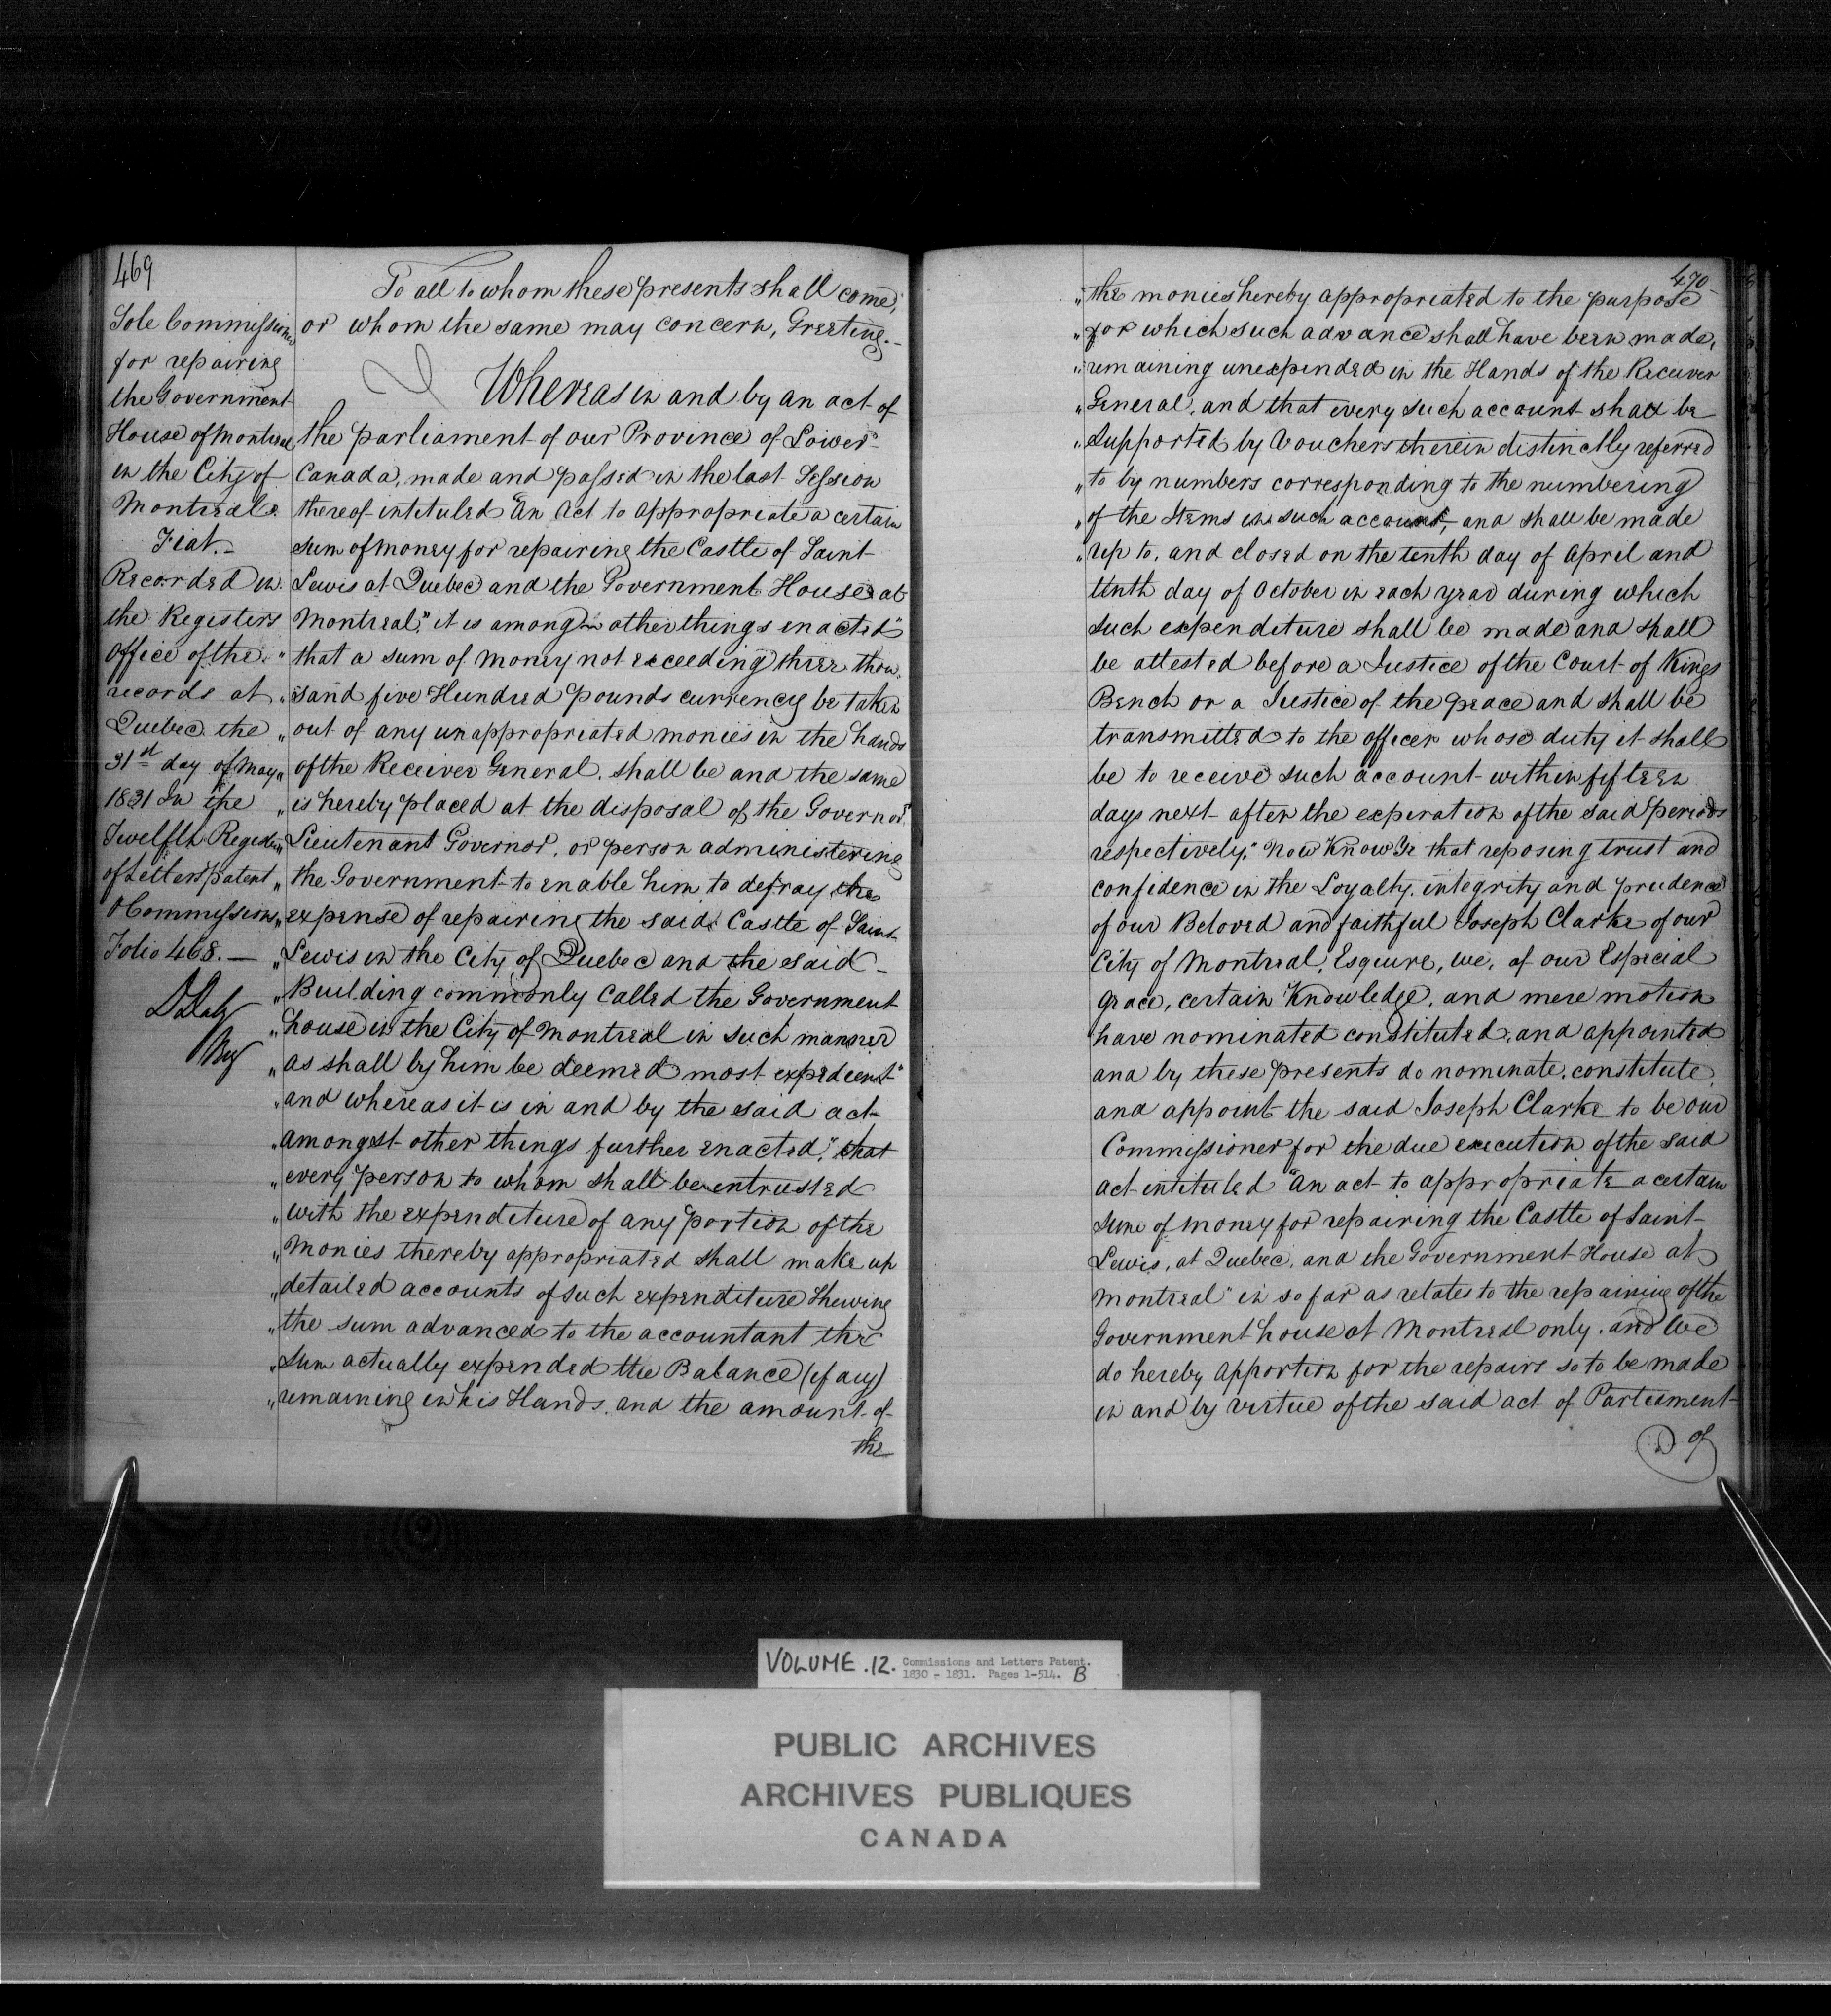 469
Sole Commissioner
for repairing
the Government
House of Montreal
in the City of
Montreal.
Fiat.
Recorded in
the Registers
office of the
records at
Quebec the
31st day of May
1831 In the
Twelfth Register
of Letters patent
& Commissions
Folio 468. —
D Daly
Reg
To all to whom these presents shall come,
or whom the same may concern, Greeting. -
Whereas in and by an act of
the parliament of our Province of Lower
Canada, made and passed in the last Session
thereof intituled "An Act to appropriate a certain
sum of money for repairing the Castle of Saint
Lewis at Quebec and the Government House at
Montreal," it is among other things enacted "
" that a sum of money not exceeding three thou
" sand five Hundred pounds currency be taken
" out of any unappropriated monies in the hands
" of the Receiver General, shall be and the same
" is hereby placed at the disposal of the Governor,
" Lieutenant Governor, or person administering
" the Government to enable him to defray the
" expense of repairing the said Castle of Saint
" Lewis in the City of Quebec and the said -
" Building commonly called the Government
" house in the City of Montreal in such manner
" as shall by him be deemed most expedient "
" and whereas it is in and by the said act
" amongst other things further enacted," that
" every person to whom shall be entrusted
" with the expenditure of any portion of the
" Monies thereby appropriated shall make up
" detailed accounts of such expenditure Shewing
" the sum advanced to the accountant the
" Sum actually expended the Balance (if any)
" remaining in his Hands, and the amount of
the
470
" the monies hereby appropriated to the purpose
" for which such advance shall have been made,
" remaining unexpended in the Hands of the Receiver
" General, and that every such account shall be
" Supported by Vouchers therein distinctly referred
" to by numbers corresponding to the numbering
" of the Items in such account, and shall be made
" up to, and closed on the tenth day of April and
tenth day of October in each year during which
such expenditure shall be made and shall
be attested before a Justice of the Court of Kings
Bench or a Justice of the peace and shall be
transmitted to the officer whose duty it shall
be to receive such account within fifteen
days next after the experation of the said periods
respectively." Now Know Ye that reposing trust and
confidence in the Loyalty, integrity and prudence
of our Beloved and faithful Joseph Clarke of our
City of Montreal, Esquire, we, of our Especial
grace, certain Knowledge, and mere motion
have nominated constituted, and appointed
and by these presents do nominate, constitute,
and appoint the said Joseph Clarke to be our
Commissioner for the due execution of the said
act intituled "An act to appropriate a certain
Sum of money for repairing the Castle of Saint
Lewis, at Quebec, and the Government House at
Montreal" in so far as relates to the repairing of the
Government house at Montreal only, and We
do hereby apportion for the repairs so to be made
in and by virtue of the said act of Parliament
of
VOLUME .12. Commissions and Letters Patent.
1830 - 1831. Pages 1-514. B
PUBLIC ARCHIVES
ARCHIVES PUBLIQUES
CANADA